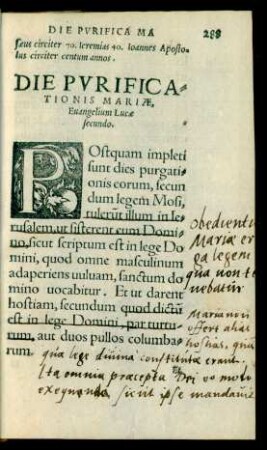 DIE PVRIFICA MA 288
sëus circiter 70. Ieremias 40. Ioannes Aposto-
lus circiter centum annos.
DIE PVRIFICA-
TIONIS MARIÆ,
Euangelium Lucæ
secundo.
POstquam impleti
sunt dies purgati-
onis eorum, secun
dum legem Mosi,
tulerunt illum in Ie-
rusalem, ut sisterent eum Domi-
no, sicut scriptum est in lege Do
mini, quod omne masculinum
adaperiens uuluam, sanctum do
mino uocabitur. Et ut darent
hostiam, secundum quod dictū
est in lege Domini, par turtu-
rum, aut duos pullos columba-
rum.
obedientia
Mariæ er
ga legem
qua non te
nebatur
Maria non
offert alias
hostias, quā
quæ lege diuina constitutæ erant.
Ita omnia præcepta Dei eo modo
exequenda, sicut ipse mandauit